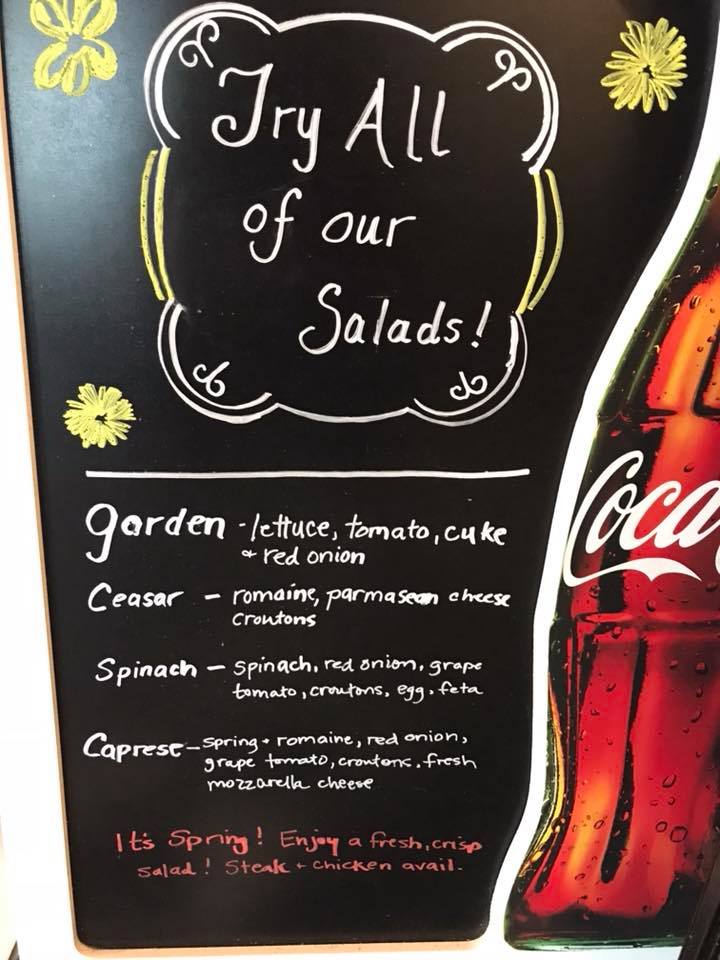 Try All
of our
Salads!
Garden - lettuce, tomato, cuke
+ red onion
Ceasar - romaine, parmasean cheese
croutons
Spinach - spinach, red onion, grape
tomato, croutons, egg, feta
Caprese - spring + romaine, red onion,
grape tomato, croutons, fresh
mozzarella cheese
It's Spring! Enjoy a fresh, crisp
salad! Steak + chicken avail.
Coca